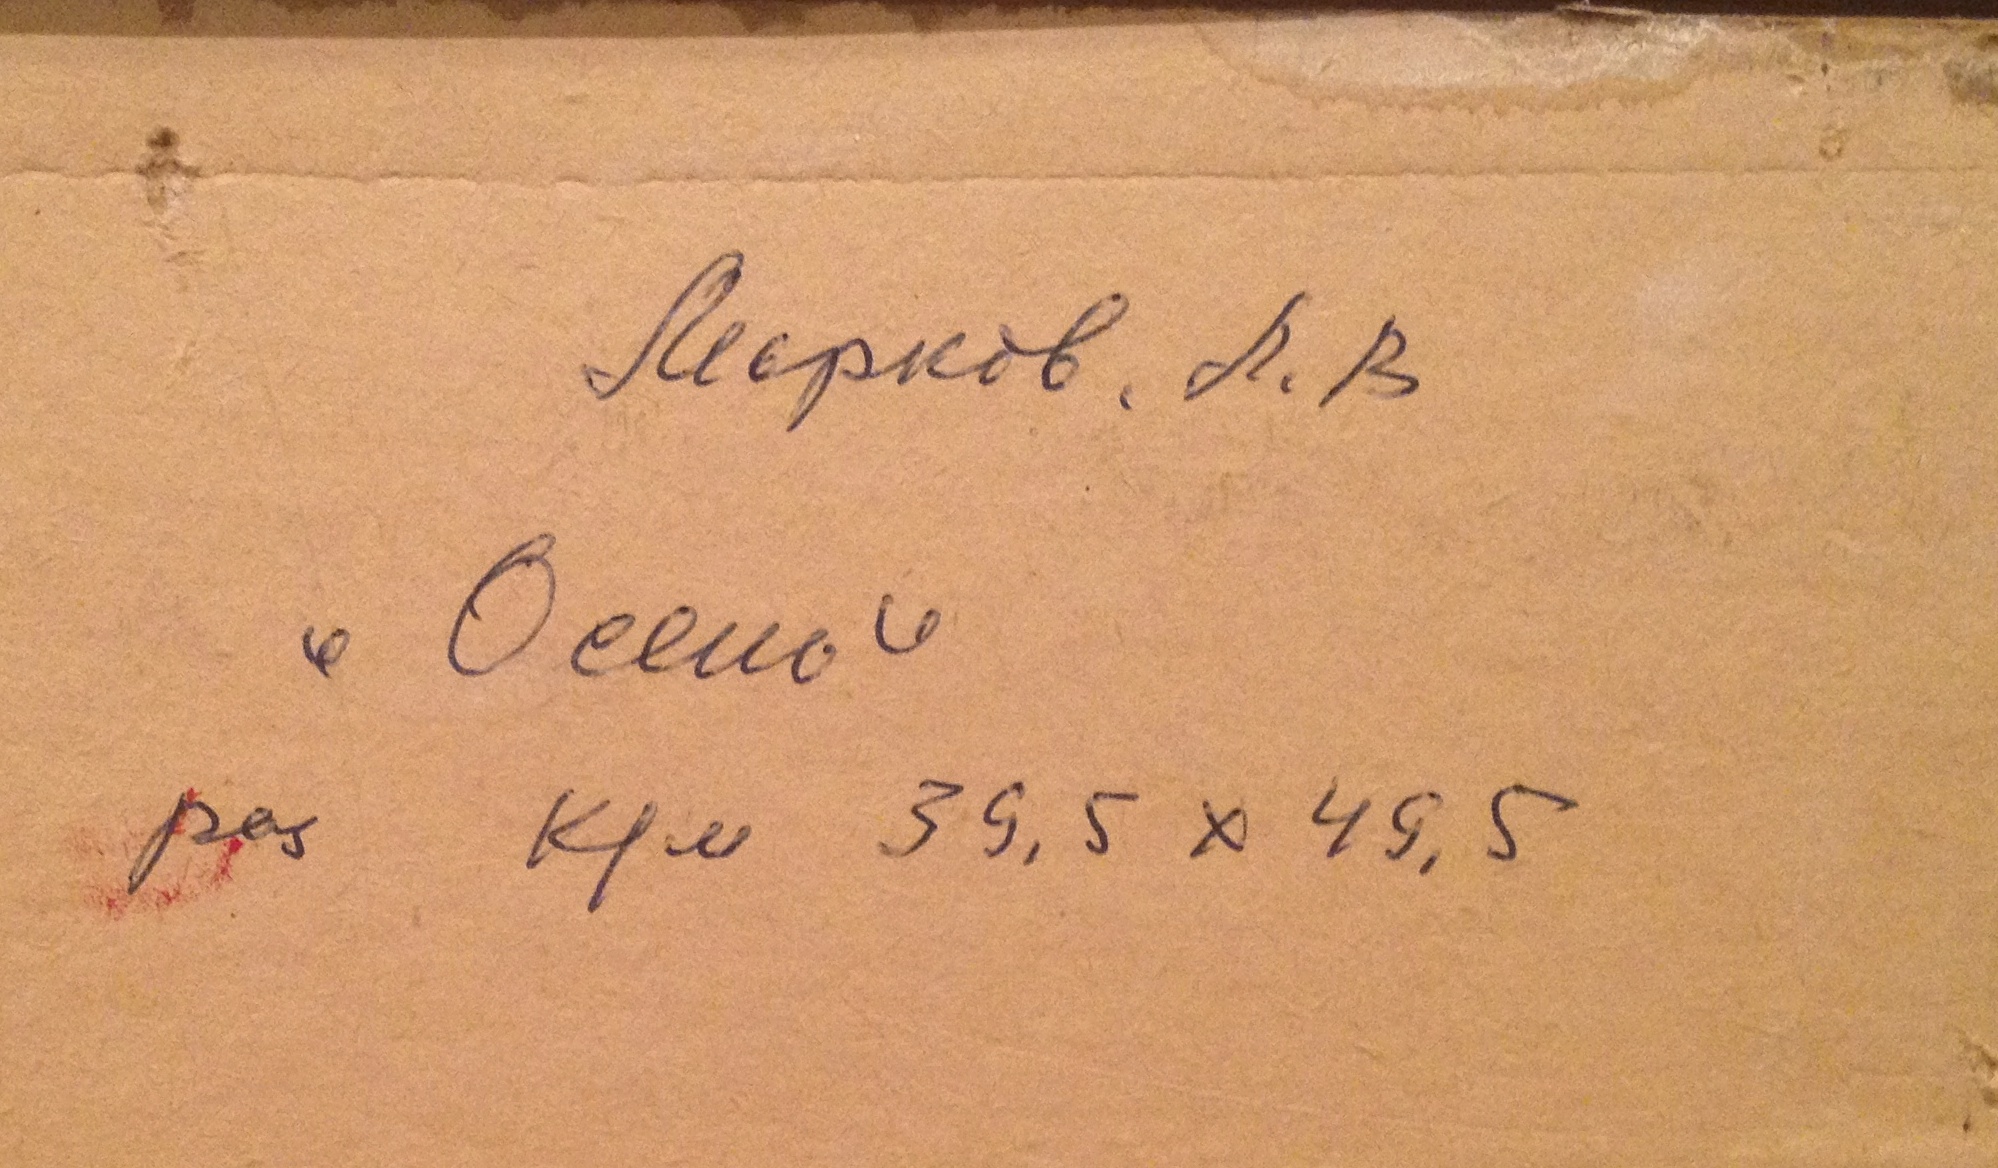 Марков. А. В
"Осень"
раз 39,5 x 49,5